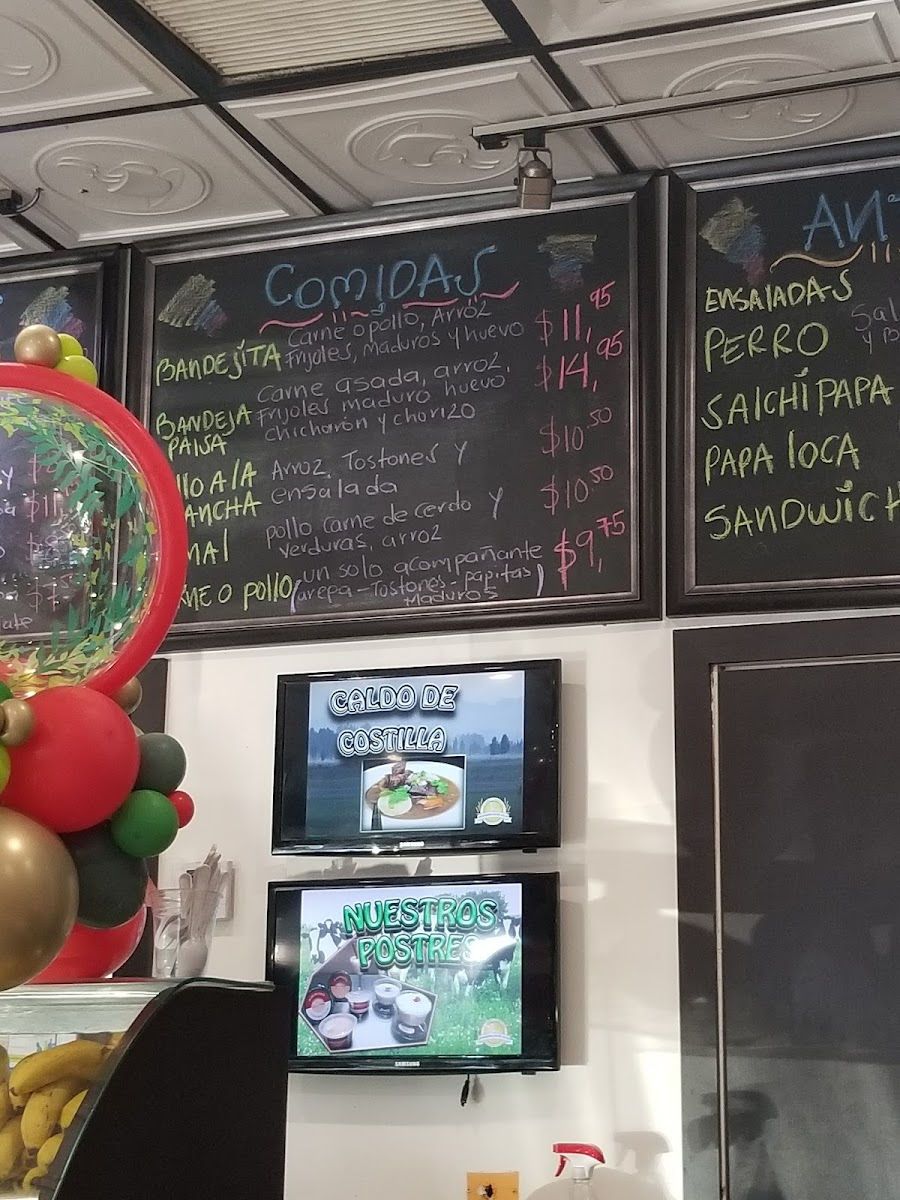 COMIDAS
BANDEJITA Carne o pollo, Arroz
Frijoles, Maduros y huevo $11,95
BANDEJA PAISA Carne asada, arroz,
Frijoles maduro huevo
chicharón y chorizo $14,95
llo A lA ANCHA Arroz, Tostones y
ensalada $10.50
pollo carne de cerdo y
verduras, arroz $10.50
NE O POLLO (un solo acompañante
arepa - Tostones - papitas
Maduros) $9,75
AN
ENSALADAS
PERRO Sal
y B
SALCHIPAPA
PAPA LOCA
SANDWICH
CALDO DE
COSTILLA
SAMSUNG
NUESTROS
POSTRES
SAMSUNG